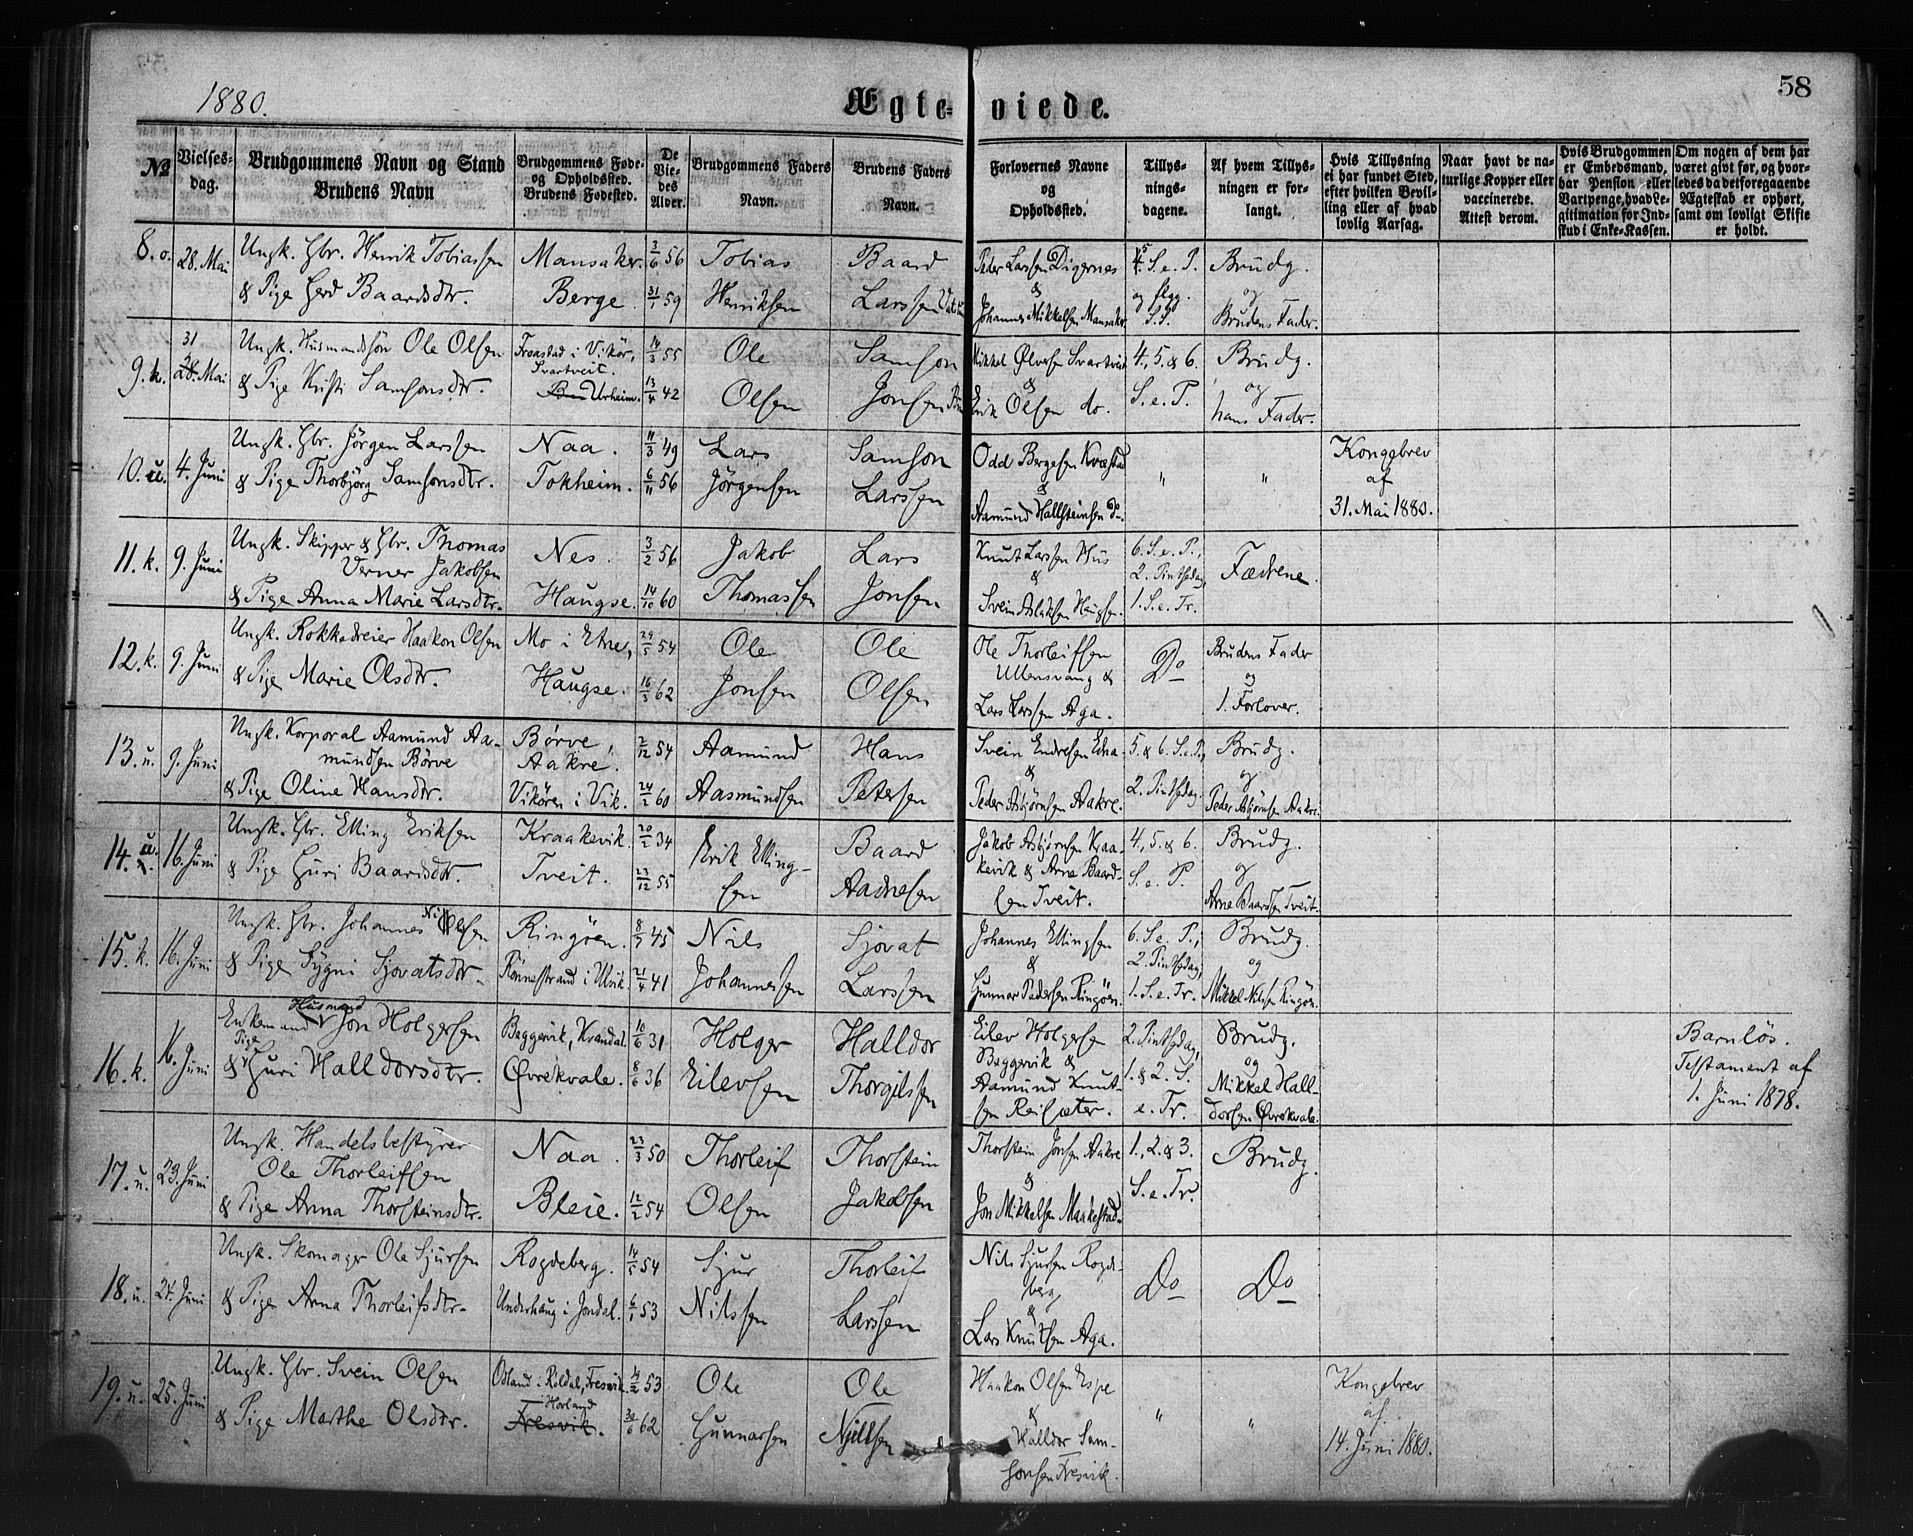 1880.
Ægteviede.
58
No
Vielses-dag.
Brudgommens Navn og Stand
Brudens Navn
Brudgommens Føde- og Opholdssted.
Brudens Fødested.
De Viedes Alder.
Brudgommens Faders Navn.
Brudens Faders Navn.
Forlovernes Navne og Opholdssted.
Tillysningsdagene.
Af hvem Tillysningen er forlangt.
Hvis Tillysning ei har fundet Sted, efter hvilken Bevilling eller af hvad lovlig Aarsag.
Naar havt de naturlige Kopper eller vaccinerede. Attest derom.
Hvis Brudgommen er Embedsmand, har Pension eller Vartpenge, hvad Legitimation for Indskud i Enke-Kassen.
Om nogen af dem har været givt før, og hvorledes da det foregaaende Ægteskab er ophørt, samt om lovligt Skifte er holdt.
8. o. 28. Mai Ungk. Gbr. Henrik Tobiassen Mansaker. 3/6 56 Tobias Baard Peder Larsen Digernes 4. 5 S. e. P. Brudg.
& Pige Gerd Baardsdtr. Berge. 31/1 59 Henriksen Larssen & Johannes Mikkelsen Mansaker. og Brudens Fader.
9. k. 31 28. Mai Ungk. Husmandssön Ole Olsen i Vikör, Svartveit. 14/3 55 Ole Samson Mikkel Ølvesen Svartveit 4., 5. & 6. Brudg.
& Pige Kristi Samsonsdtr. Urheim. 13/4 42 Olsen Jonsen & Erik Olsen do. S. e. P. og hans Fader.
10. u. 4. Juni Ungk. Gbr. Jörgen Larssen Naa. 11/3 49 Lars Samson Odd Bergesen Kvæstad " " Kongebrev
& Pige Thorbjörg Samsonsdtr. Tokheim. 6/11 56 Jörgensen Larssen & Aamund Hallsteinsen do. af 31. Mai 1880.
11. k. 9. Juni Ungk. Skipper & Gbr. Thomas Verner Jakobsen Nes. 3/2 56 Jakob Lars Knut Larssen Hus 6. S. e. P., 2. Pintsdag, Fædrene.
& Pige Anna Marie Larsdtr. Haugse. 14/10 60 Thomassen Jonsen & Svein Aslaksen Haugse. 1. S. e. Tr.
12. k. 9. Juni Ungk. Rokkedreier Haakon Olsen Mo i Etne, 29/5 54 Ole Ole Ole Thorleifsen Ullensvang & Do Brudens Fader
& Pige Marie Olsdtr. Haugse. 16/3 62 Jonsen Olsen Lars Larssen Aga. og 1. Forlover.
13. u. 9. Juni Ungk. Korporal Aamund Aamundsen Börve Börve, Aakre. 2/12 54 Aamund Hans Svein Endresen Edna 5. & 6. S. e. P., Brudg.
& Pige Oline Hansdtr. Vikören i Vik. 24/2 60 Aasmundsen Petersen & Peder Asbjørnsen Aakre. 2. Pintsdag. og Peder Asbjørnsen Aakre.
14. u. 16. Juni Ungk. Gbr. Elling Eriksen Kraakevik. 20/2 34 Erik Ellingsen Baard Jakob Asbjørnsen Kraakevik & Arne Baardsen Tveit. 4., 5. & 6. Brudg.
& Pige Guri Baardsdtr. Tveit. 23/12 55 Aadnesen S. e. P. og Arne Baardsen Tveit.
15. k. 16. Juni Ungk. Gbr. Johannes Nilsen Ringöen. 8/7 45 Nils Sjovat Johannes Ellingsen 6. S. e. P., 2. Pintsdag, Brudg.
& Pige Sygni Sjovatsdtr. Rönnestrand i Ulvik. 21/4 41 Johannesen Larssen & Gunnar Pedersen Ringöen. 1. S. e. Tr. og Mikkel Nilsen Ringöen.
16. k. 16. Juni Enkemand Husmand Jon Holgersen Baggervik, Kvandal. 10/6 31 Holger Halldor Eilev Holgersen Baggervik & 2. Pintsdag, Brudg. Barnlös.
& Pige Guri Halldorsdtr. Øvrekvale. 8/6 36 Eilevsen Thorgilssen Aamund Knutsen Reisæter. 1. & 2. S. e. Tr. og Mikkel Halldorsen Øvrekvale. Testament af 1. Juni 1878.
17. u. 23. Juni Ungk. Handelsbestyrer Ole Thorleifsen Naa. 23/3 50 Thorleif Thorstein Thorstein Jonsen Aakre 1., 2. & 3. Brudg.
& Pige Anna Thorsteinsdtr. Bleie. 12/2 54 Olsen Jakobsen & Jon Mikkelsen Maakestad. S. e. Tr.
18. u. 24. Juni Ungk. Skomager Ole Sjursen Rogdeberg. 14/5 54 Sjur Thorleif Nils Sjursen Rogdeberg Do Do
& Pige Arna Thorleifsdtr. Underhaug i Jondal. 6/1 53 Nilssen Larssen & Lars Knutsen Aga.
19. u. 25. Juni Ungk. Gbr. Svein Olsen i Röldal, Tresvik. 14/2 53 Ole Ole Haakon Olsen Espe " " Kongebrev
& Pige Marthe Olsdtr. Horland Tresvik. 30/6 62 Gunnarsen & Halldor Samsonsen Tresvik. af 14. Juni 1880.